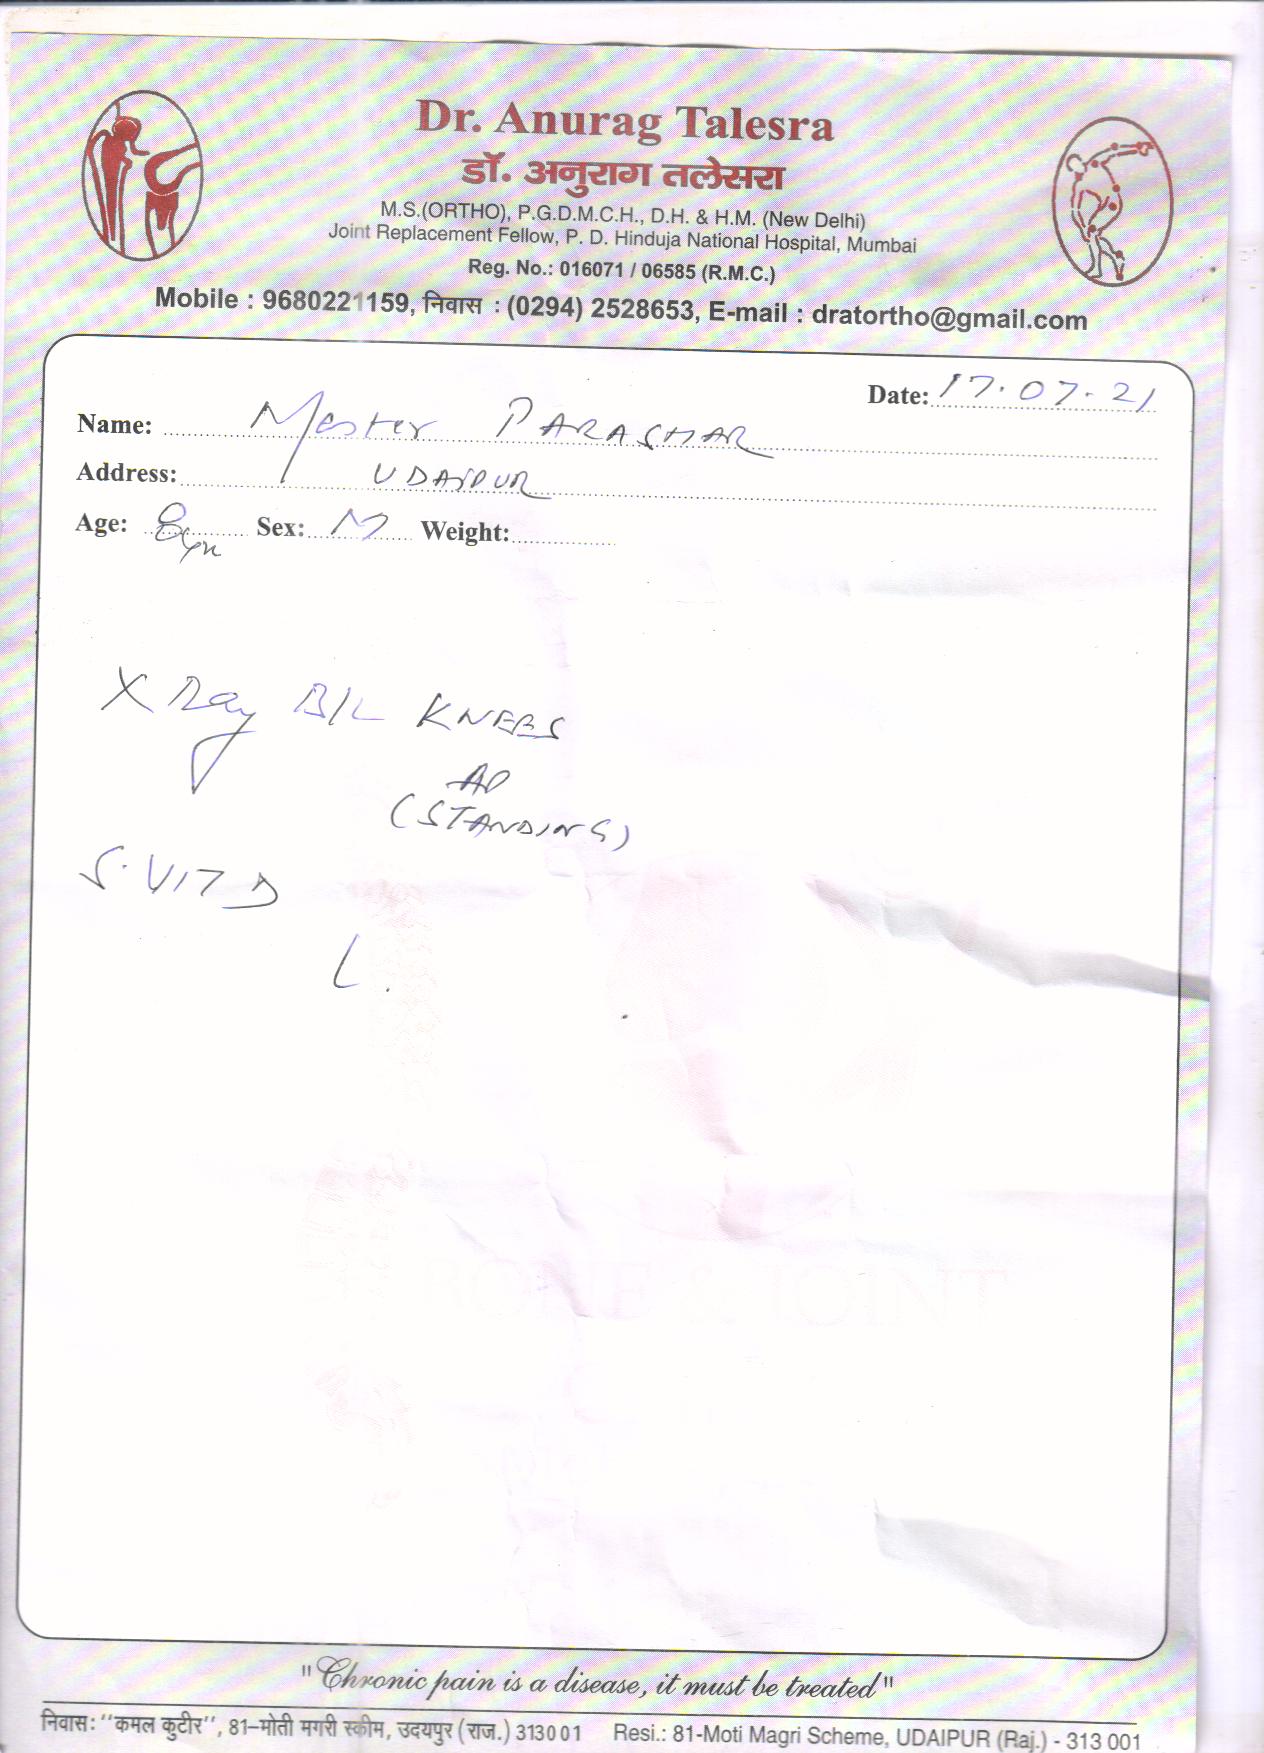 Dr. Anurag Talesra
डॉ. अनुराग तलेसरा
M.S.(ORTHO), P.G.D.M.C.H., D.H. & H.M. (New Delhi)
Joint Replacement Fellow, P. D. Hinduja National Hospital, Mumbai
Reg. No.: 016071 / 06585 (R.M.C.)
Mobile : 9680221159, निवास : (0294) 2528653, E-mail : dratortho@gmail.com
Date: 17.07.21
Name: Master PARASHAR
Address: UDAIPUR
Age: 8yr Sex: M Weight:
X Ray B/L KNEES
AP
(STANDING)
S.VIT D
"Chronic pain is a disease, it must be treated"
निवास: "कमल कुटीर", 81–मोती मगरी स्कीम, उदयपुर (राज.) 313001 Resi.: 81-Moti Magri Scheme, UDAIPUR (Raj.) - 313 001